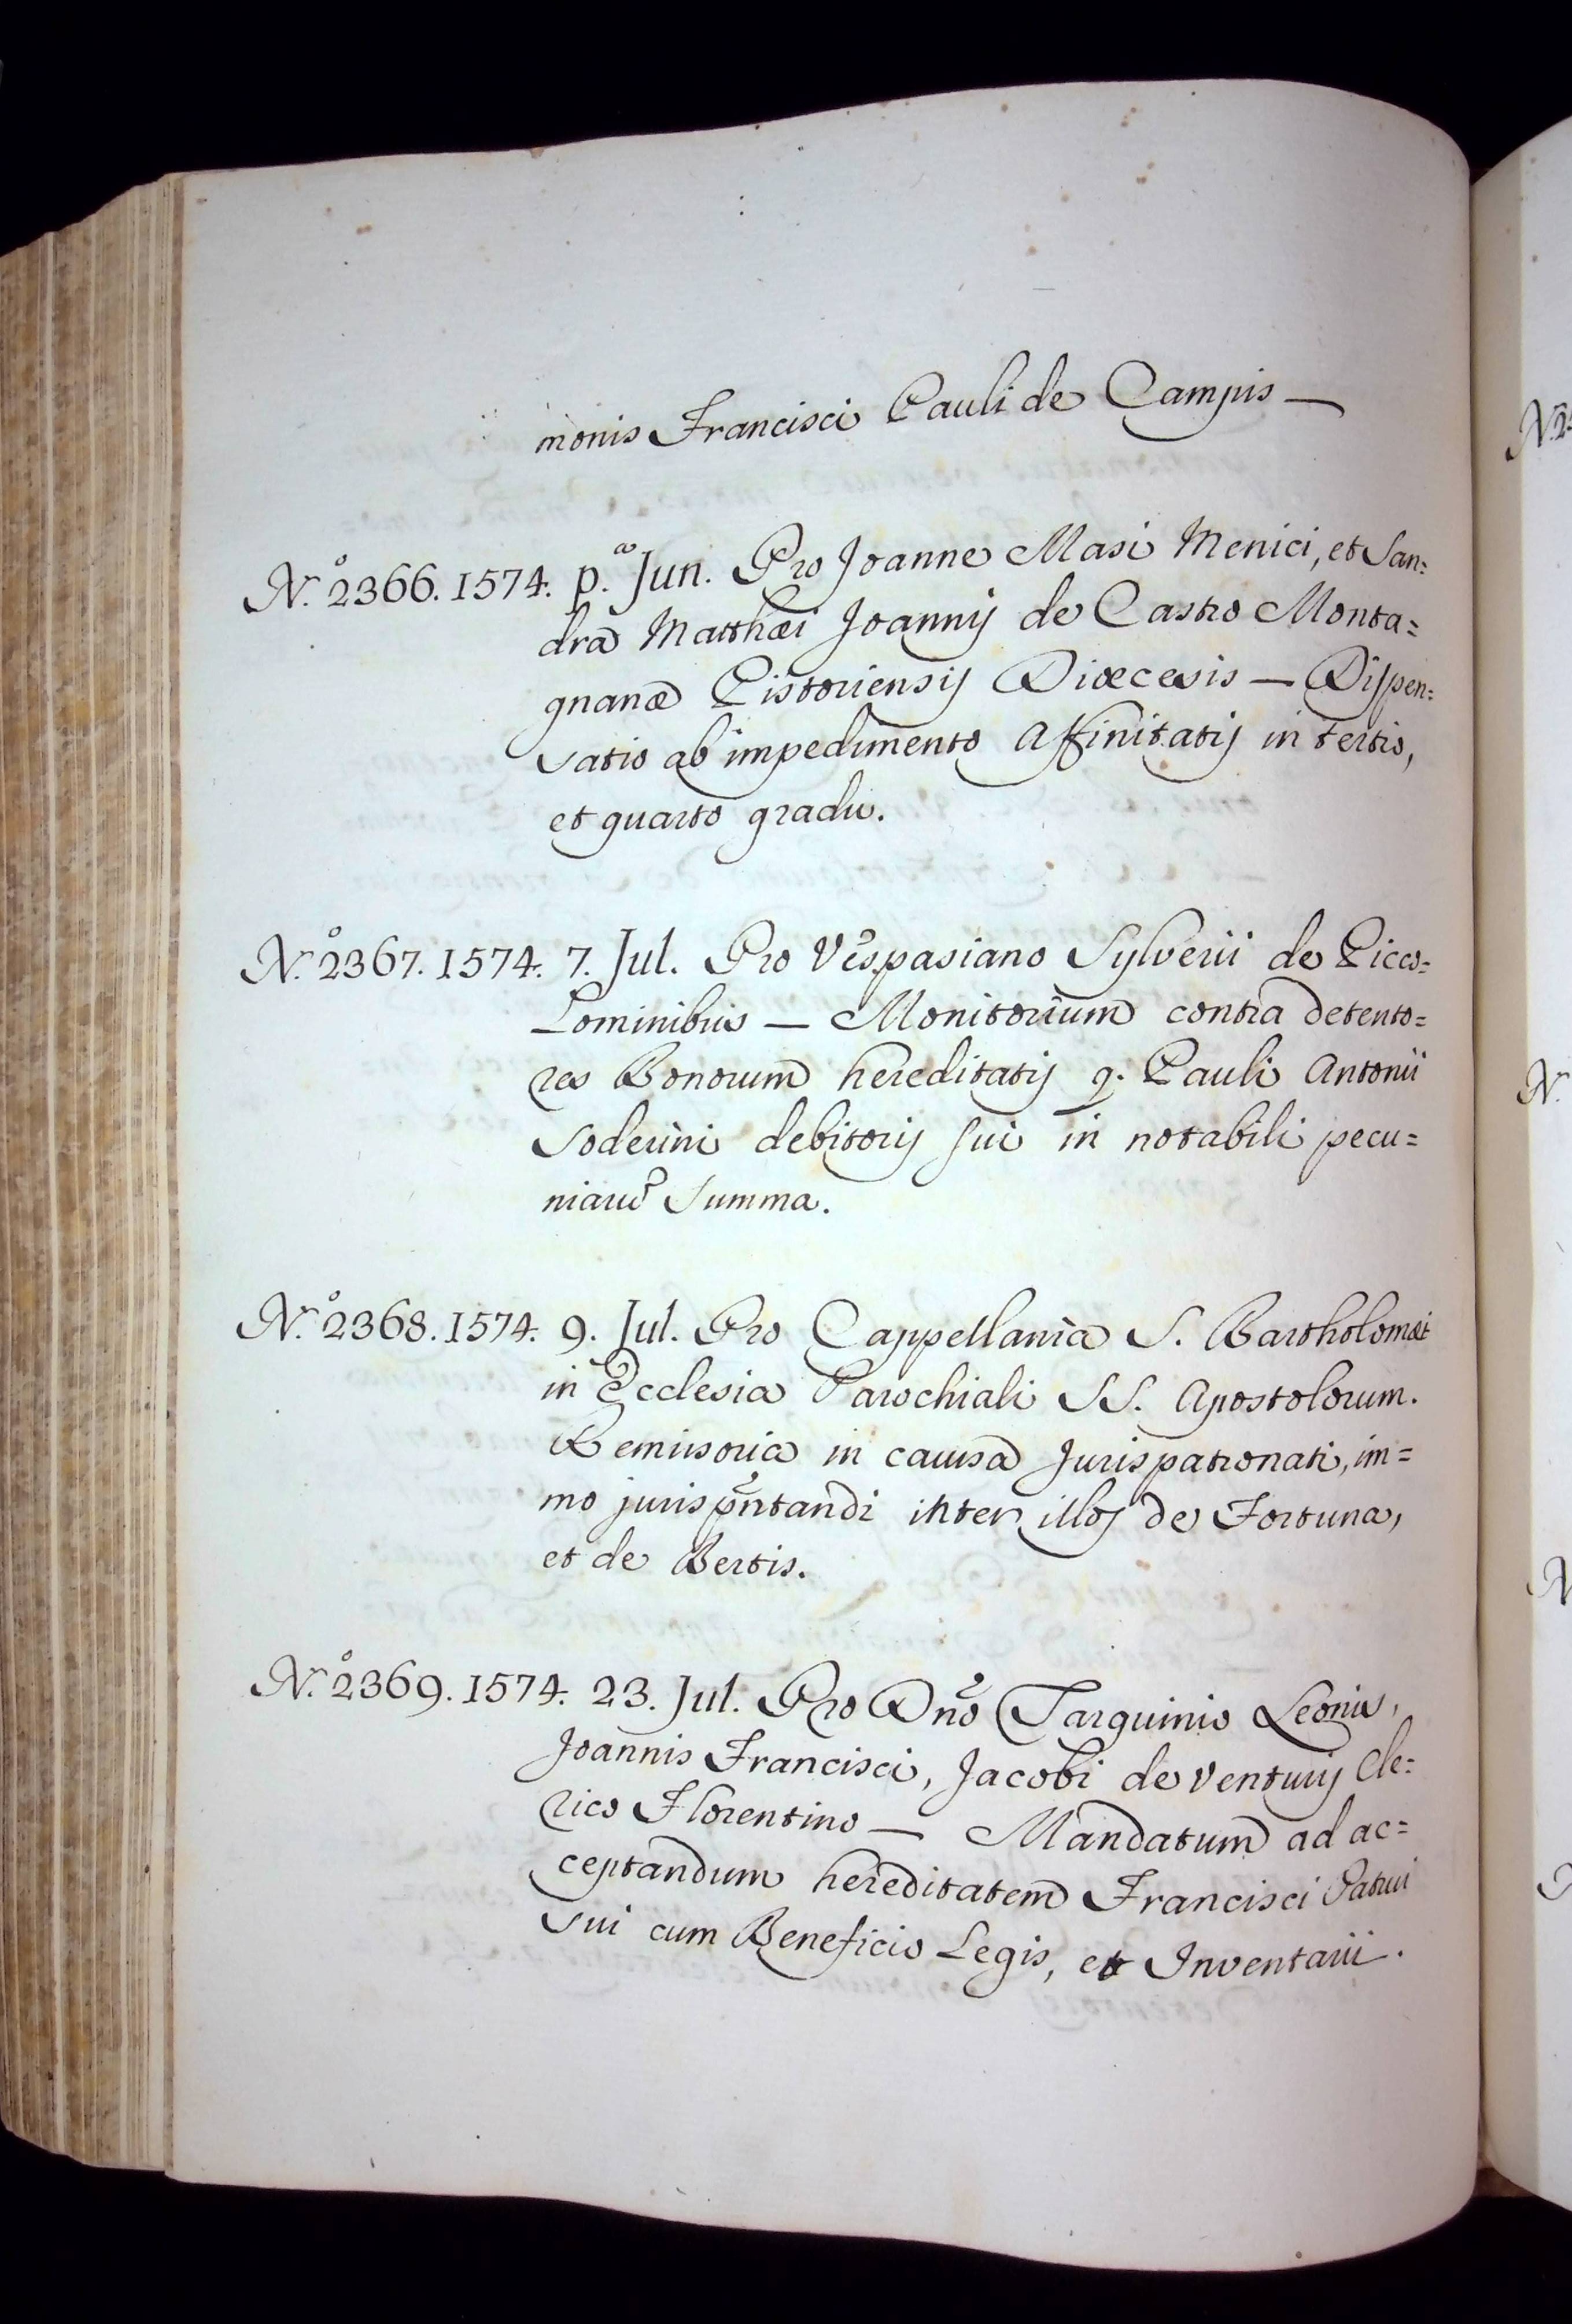 monis Francisci Pauli de Campis —
N.º 2366. 1574. p.ª Jun. Pro Joanne Masi Menici, et San=
dra Matthæi Joannis de Castro Monta=
gnanæ Pistoriensis Diœcesis — Dispen=
satio ab impedimento Affinitatis in tertio,
et quarto gradu.
N.º 2367. 1574. 7. Jul. Pro Vespasiano Sylverii de Picco=
lominibus — Monitorium contra detento=
res Bonorum hereditatis q. Pauli Antonii
Soderini debitoris sui in notabili pecu=
niarũ Summa.
N.º 2368. 1574. 9. Jul. Pro Cappellania S. Bartholomæi
in Ecclesia Parochiali SS. Apostolorum.
Remissoria in causa Jurispatronati, im=
mo jurisp̃ntandi inter illos de Fortuna,
et de Bertis.
N.º 2369. 1574. 23. Jul. Pro Dnõ Tarquinio Leonis,
Joannis Francisci, Jacobi de Venturis Cle=
rico Florentino — Mandatum ad ac=
ceptandum hereditatem Francisci Patrui
sui cum Beneficio Legis, et Inventarii.
N.